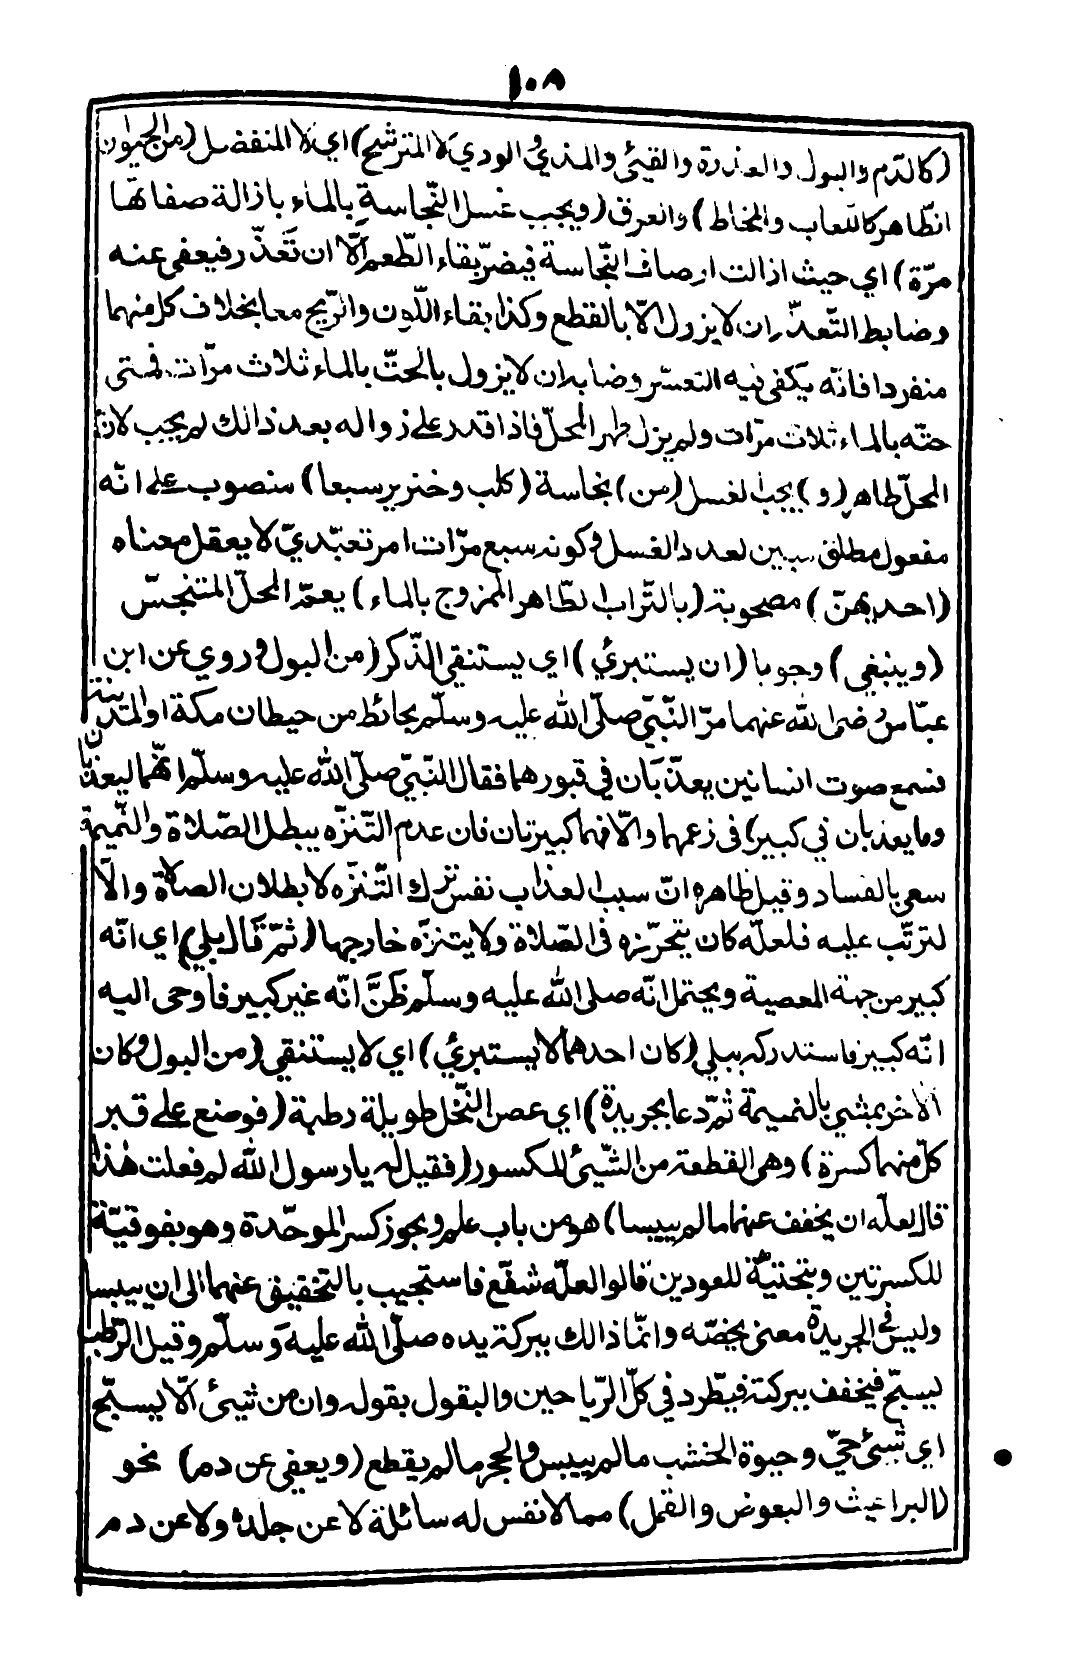 ١٠٨
(كالدّم والبول والعذرة والقيئ والمذي والودي لا المترشح) اي لا المنفصل (من الحيوان
الطّاهر كاللعاب والمخاط) والعرق (ويجب غسل النّجاسة بالماء بازالة صفاتها
مرّة) اي حيث ازالت اوصاف النّجاسة فيضرّ بقاء الطّعم الّا ان تَعَذّر فيعفى عنه
وضابط التّعذّر ان لا يزول الّا بالقطع وكذا بقاء اللّون والرّيح معا بخلاف كل منهما
منفردا فانّه يكفي فيه التعسّر وضابطه ان لا يزول بالحتّ بالماء ثلاث مرّات فمتى
حتّه بالماء ثلاث مرّات ولم يزل طهر المحلّ فاذا قدر على زواله بعد ذالك لم يجب لانّ
المحلّ طاهر (و) يجب الغسل (من) نجاسة (كلب وخنزير سبعا) منصوب على انّه
مفعول مطلق مبين لعدد الغسل وكونه سبع مرّات امر تعبّديّ لا يعقل معناه
(احديهنّ) مصحوبة (بالتّراب الطّاهر الممزوج بالماء) يعمّ المحلّ المتنجسّ
(وينبغي) وجوبا (ان يستبرئ) اي يستنقي الذّكر (من البول وروي عن ابن
عبّاس رضى الله عنهما مرّ النّبيّ صلّى الله عليه وسلّم بحائط من حيطان مكة او المدينة
فسمع صوت انسانين يعذّبَان في قبورهما فقال النّبيّ صلّى الله عليه وسلّم انّهما ليعذّبان
وما يعذبان في كبير) فى زعمها والّا فهما كبيرتان فان عدم التّنزّه يبطل الصّلاة والنّميمة
سعي بالفساد وقيل ظاهره انّ سبب العذاب نفس ترك التّنزّه لا بطلان الصلاة والّا
لترتّب عليه فلعلّه كان يتحرّزه فى الصّلاة ولا يتنزّه خارجها (ثمّ قَال بلي) اي انّه
كبير من جهة المعصية ويحتمل انّه صلى الله عليه وسلّم ظَنَّ انّه غير كبير فاوحى اليه
انّه كبير فاستدركه ببلي (كان احدهما لا يستبرئ) اي لا يستنقي (من البول وكان
الاخر يمشي بالنميمة ثمّ دعا بجريدة) اي عصر النّخل طويلة رطبة (فوضع على قبر
كلّ منهما كسرة) وهي القطعة من الشّيئ المكسور (فقيل له يارسول الله لم فعلت هٰذا
قال لعلّه ان يخفف عنهما ما لم ييبسا) هو من باب علم ويجوز كسر الموحّدة وهو بفوقيّة
للكسرتين وبتحتيّة للعودين قالوا لعلّه شفّع فاستجيب بالتخفيف عنهما الى ان ييبسا
وليس فى الجريدة معنى يخصّه وانّما ذالك ببركة يده صلّى الله عليه وَسلّم وقيل الرّطب
يسبّح فيخفف ببركته فيطّرد في كلّ الرّياحين والبقول بقوله وان من شيئ الّا يسبّح
اي شيئ حيّ وحيوة الخشب ما لم ييبس والحجر ما لم يقطع (ويعفي عن دم) نحو
(البراغيث والبعوض والقمل) مما لا نفس له سائلة لا عن جلده ولا عن دم